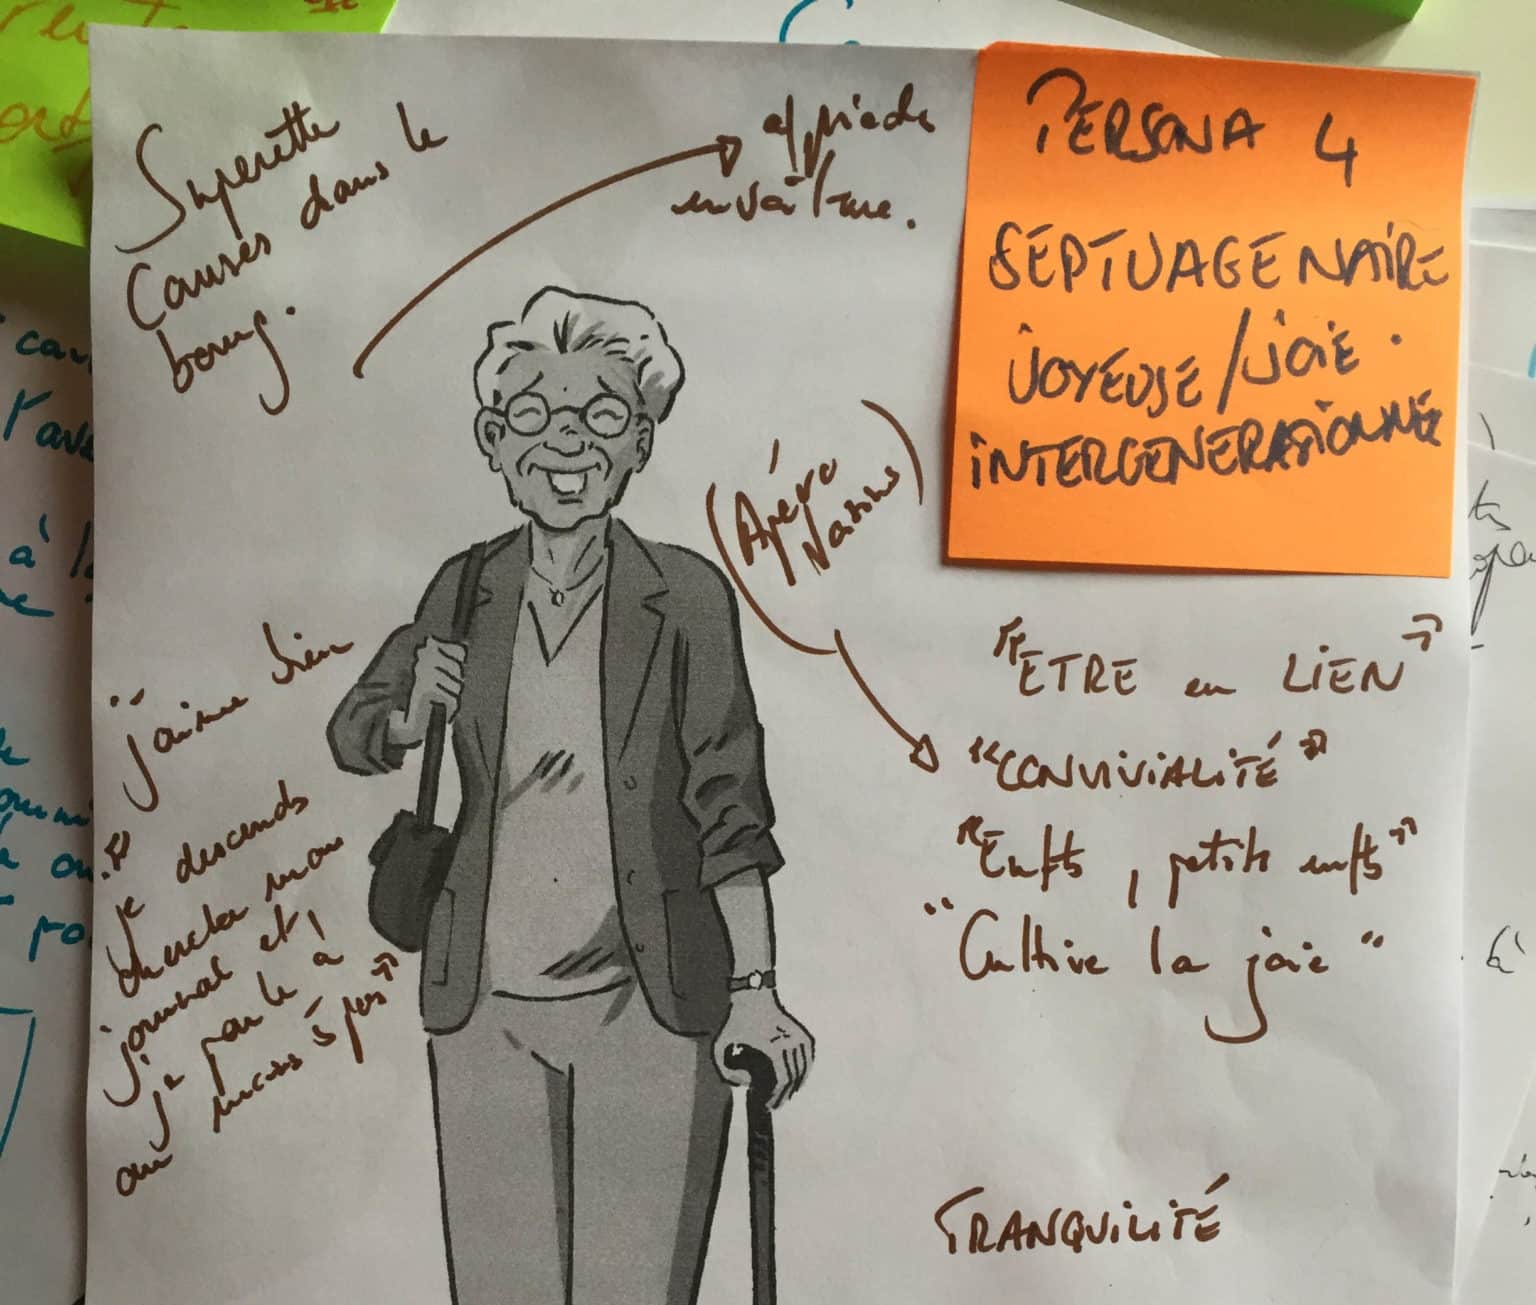 Superette
Courses dans le
bourg.
à pieds
en voiture.
PERSONA 4
SEPTUAGENAIRE
JOYEUSE / JOIE
INTERGENERATIONNEL
(Apéro
Voisins)
"ETRE en LIEN"
"CONVIVIALITÉ"
"Enfts, petits enfts"
"Cultive la joie"
TRANQUILITÉ
"j'aime bien
"je descends
chercher mon
journal et
j'parle à
au moins 5 pers"
à